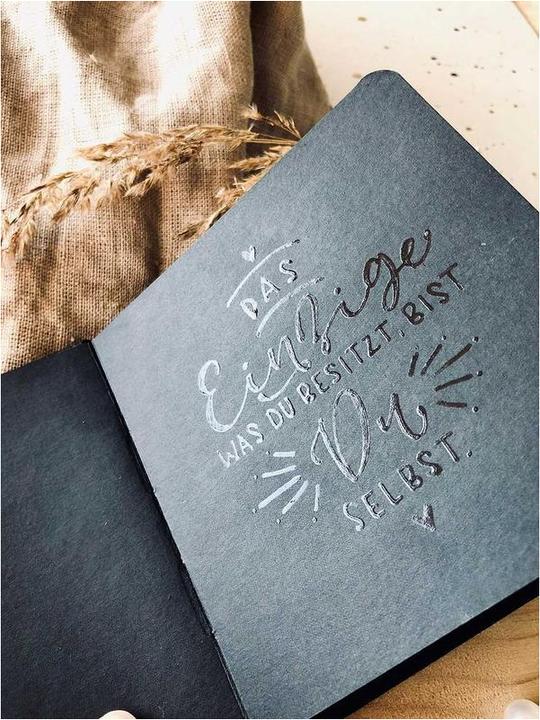 DAS
Einzige
WAS DU BESITZT, BIST
Du
SELBST.